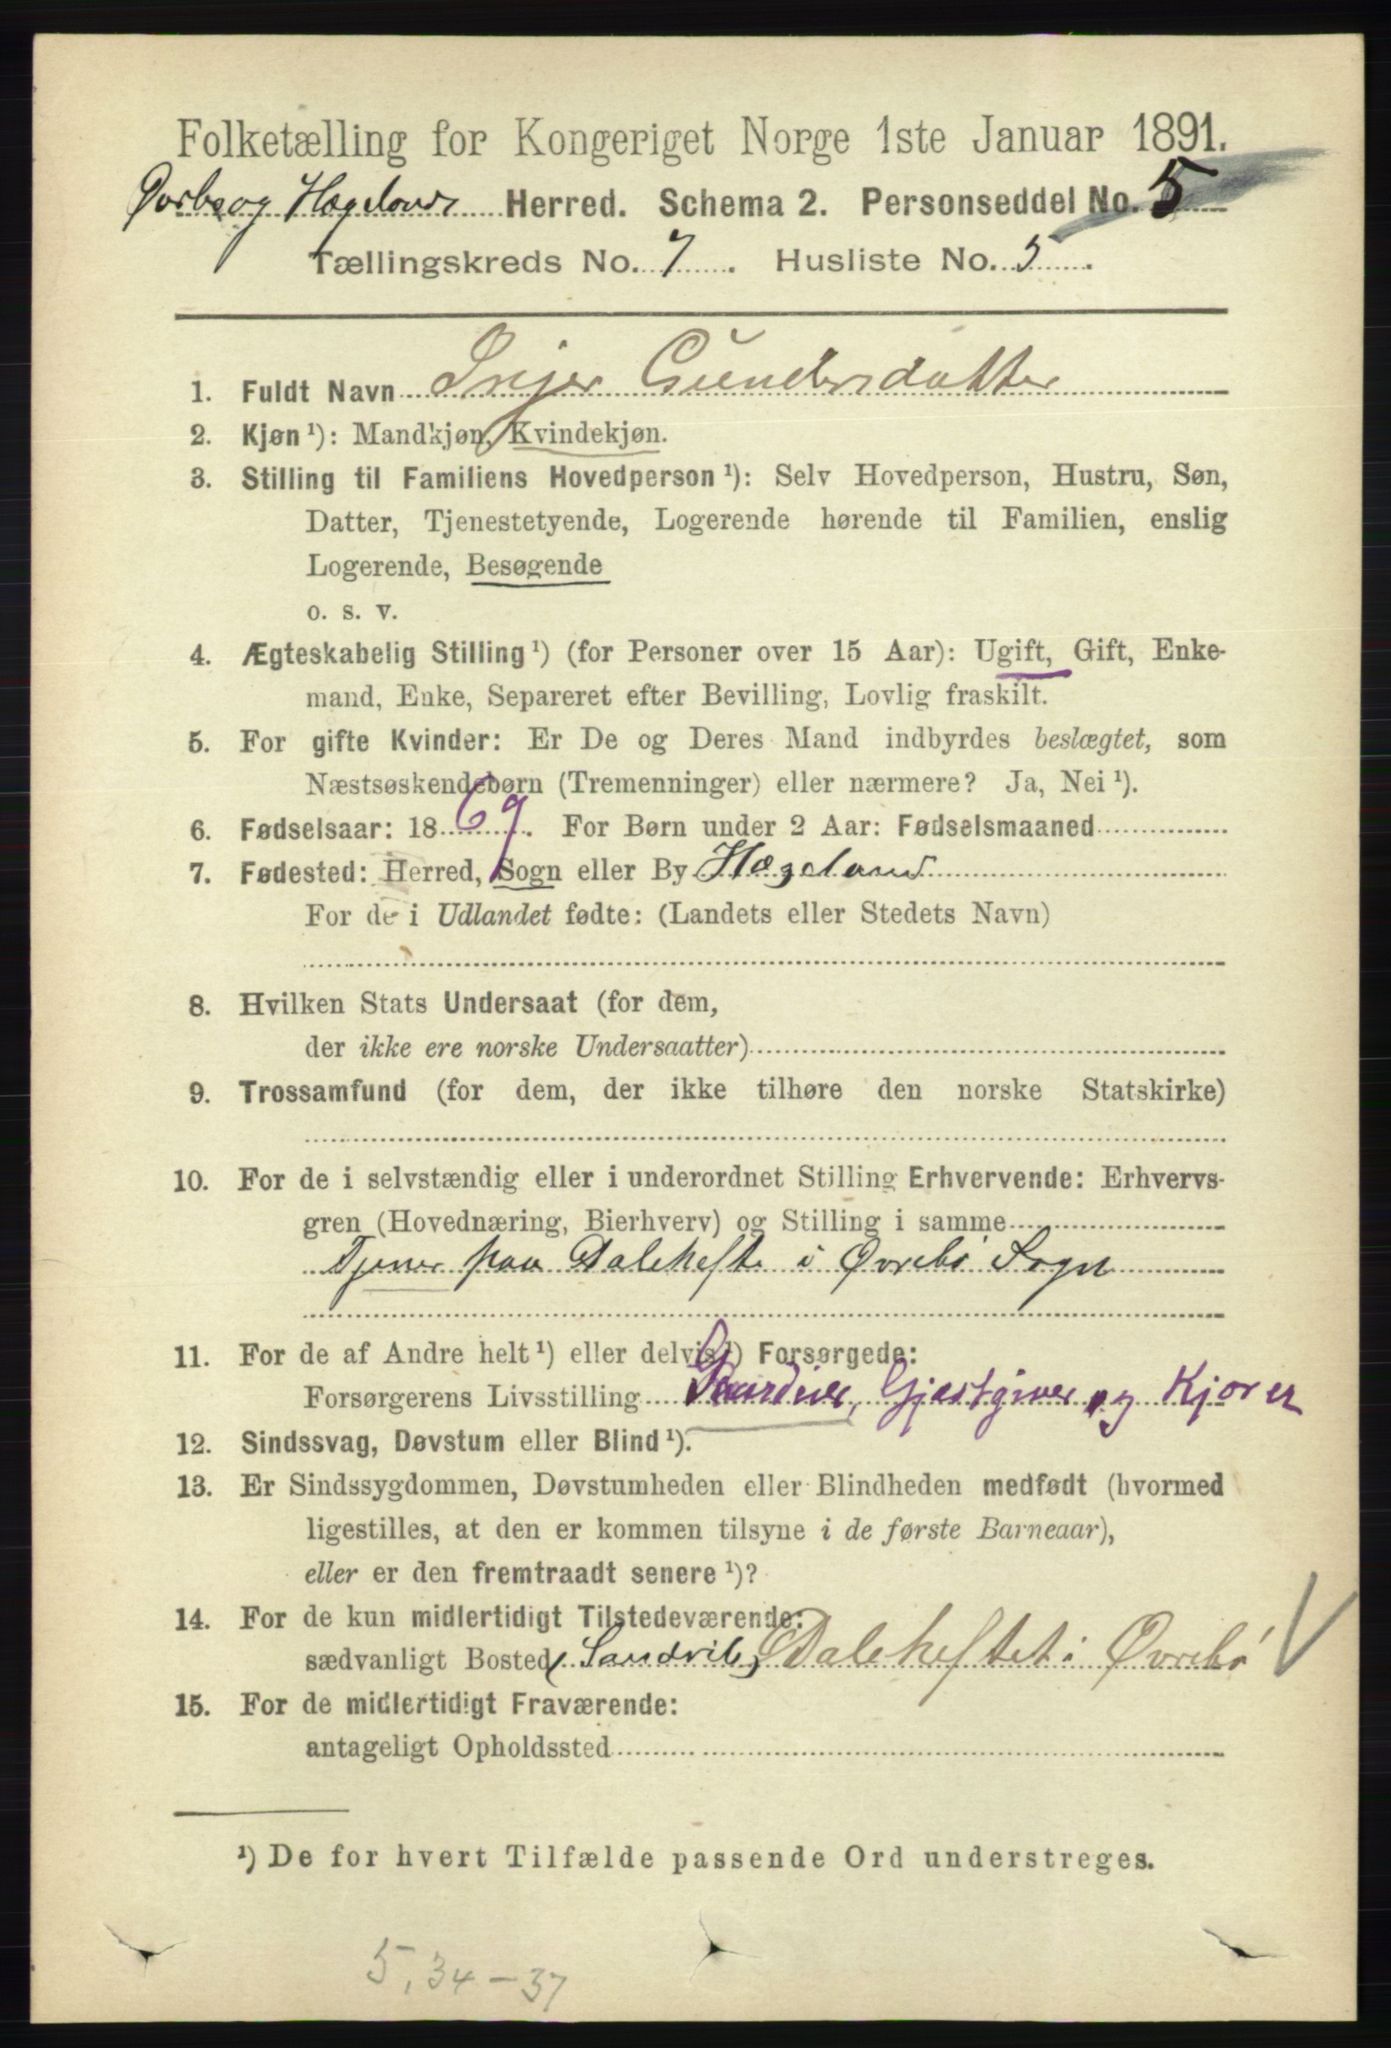 Folketælling for Kongeriget Norge 1ste Januar 1891.
og Hægeland Herred. Schema 2. Personseddel No. 5
Tællingskreds No. 7. Husliste No. 5.
1. Fuldt Navn Inger Gundersdatter
2. Kjøn ¹): Mandkjøn, Kvindekjøn.
3. Stilling til Familiens Hovedperson ¹): Selv Hovedperson, Hustru, Søn,
Datter, Tjenestetyende, Logerende hørende til Familien, enslig
Logerende, Besøgende
o. s. v.
4. Ægteskabelig Stilling ¹) (for Personer over 15 Aar): Ugift, Gift, Enke-
mand, Enke, Separeret efter Bevilling, Lovlig fraskilt.
5. For gifte Kvinder: Er De og Deres Mand indbyrdes beslægtet, som
Næstsøskendebørn (Tremenninger) eller nærmere? Ja, Nei ¹).
6. Fødselsaar: 1869. For Børn under 2 Aar: Fødselsmaaned
7. Fødested: Herred, Sogn eller By Hægeland
For de i Udlandet fødte: (Landets eller Stedets Navn)
8. Hvilken Stats Undersaat (for dem,
der ikke ere norske Undersaatter)
9. Trossamfund (for dem, der ikke tilhøre den norske Statskirke)
10. For de i selvstændig eller i underordnet Stilling Erhvervende: Erhvervs-
gren (Hovednæring, Bierhverv) og Stilling i samme
Tjener paa Dalehefte i Øvrebø Sogn
11. For de af Andre helt ¹) eller delvis ¹) Forsørgede:
Forsørgerens Livsstilling Gjæstgiver og Kjører
12. Sindssvag, Døvstum eller Blind ¹).
13. Er Sindssygdommen, Døvstumheden eller Blindheden medfødt (hvormed
ligestilles, at den er kommen tilsyne i de første Barneaar),
eller er den fremtraadt senere ¹)?
14. For de kun midlertidigt Tilstedeværende:
sædvanligt Bosted (Sandvik) Daleheftet i Øvrebø
15. For de midlertidigt Fraværende:
antageligt Opholdssted
¹) De for hvert Tilfælde passende Ord understreges.
5,34-37